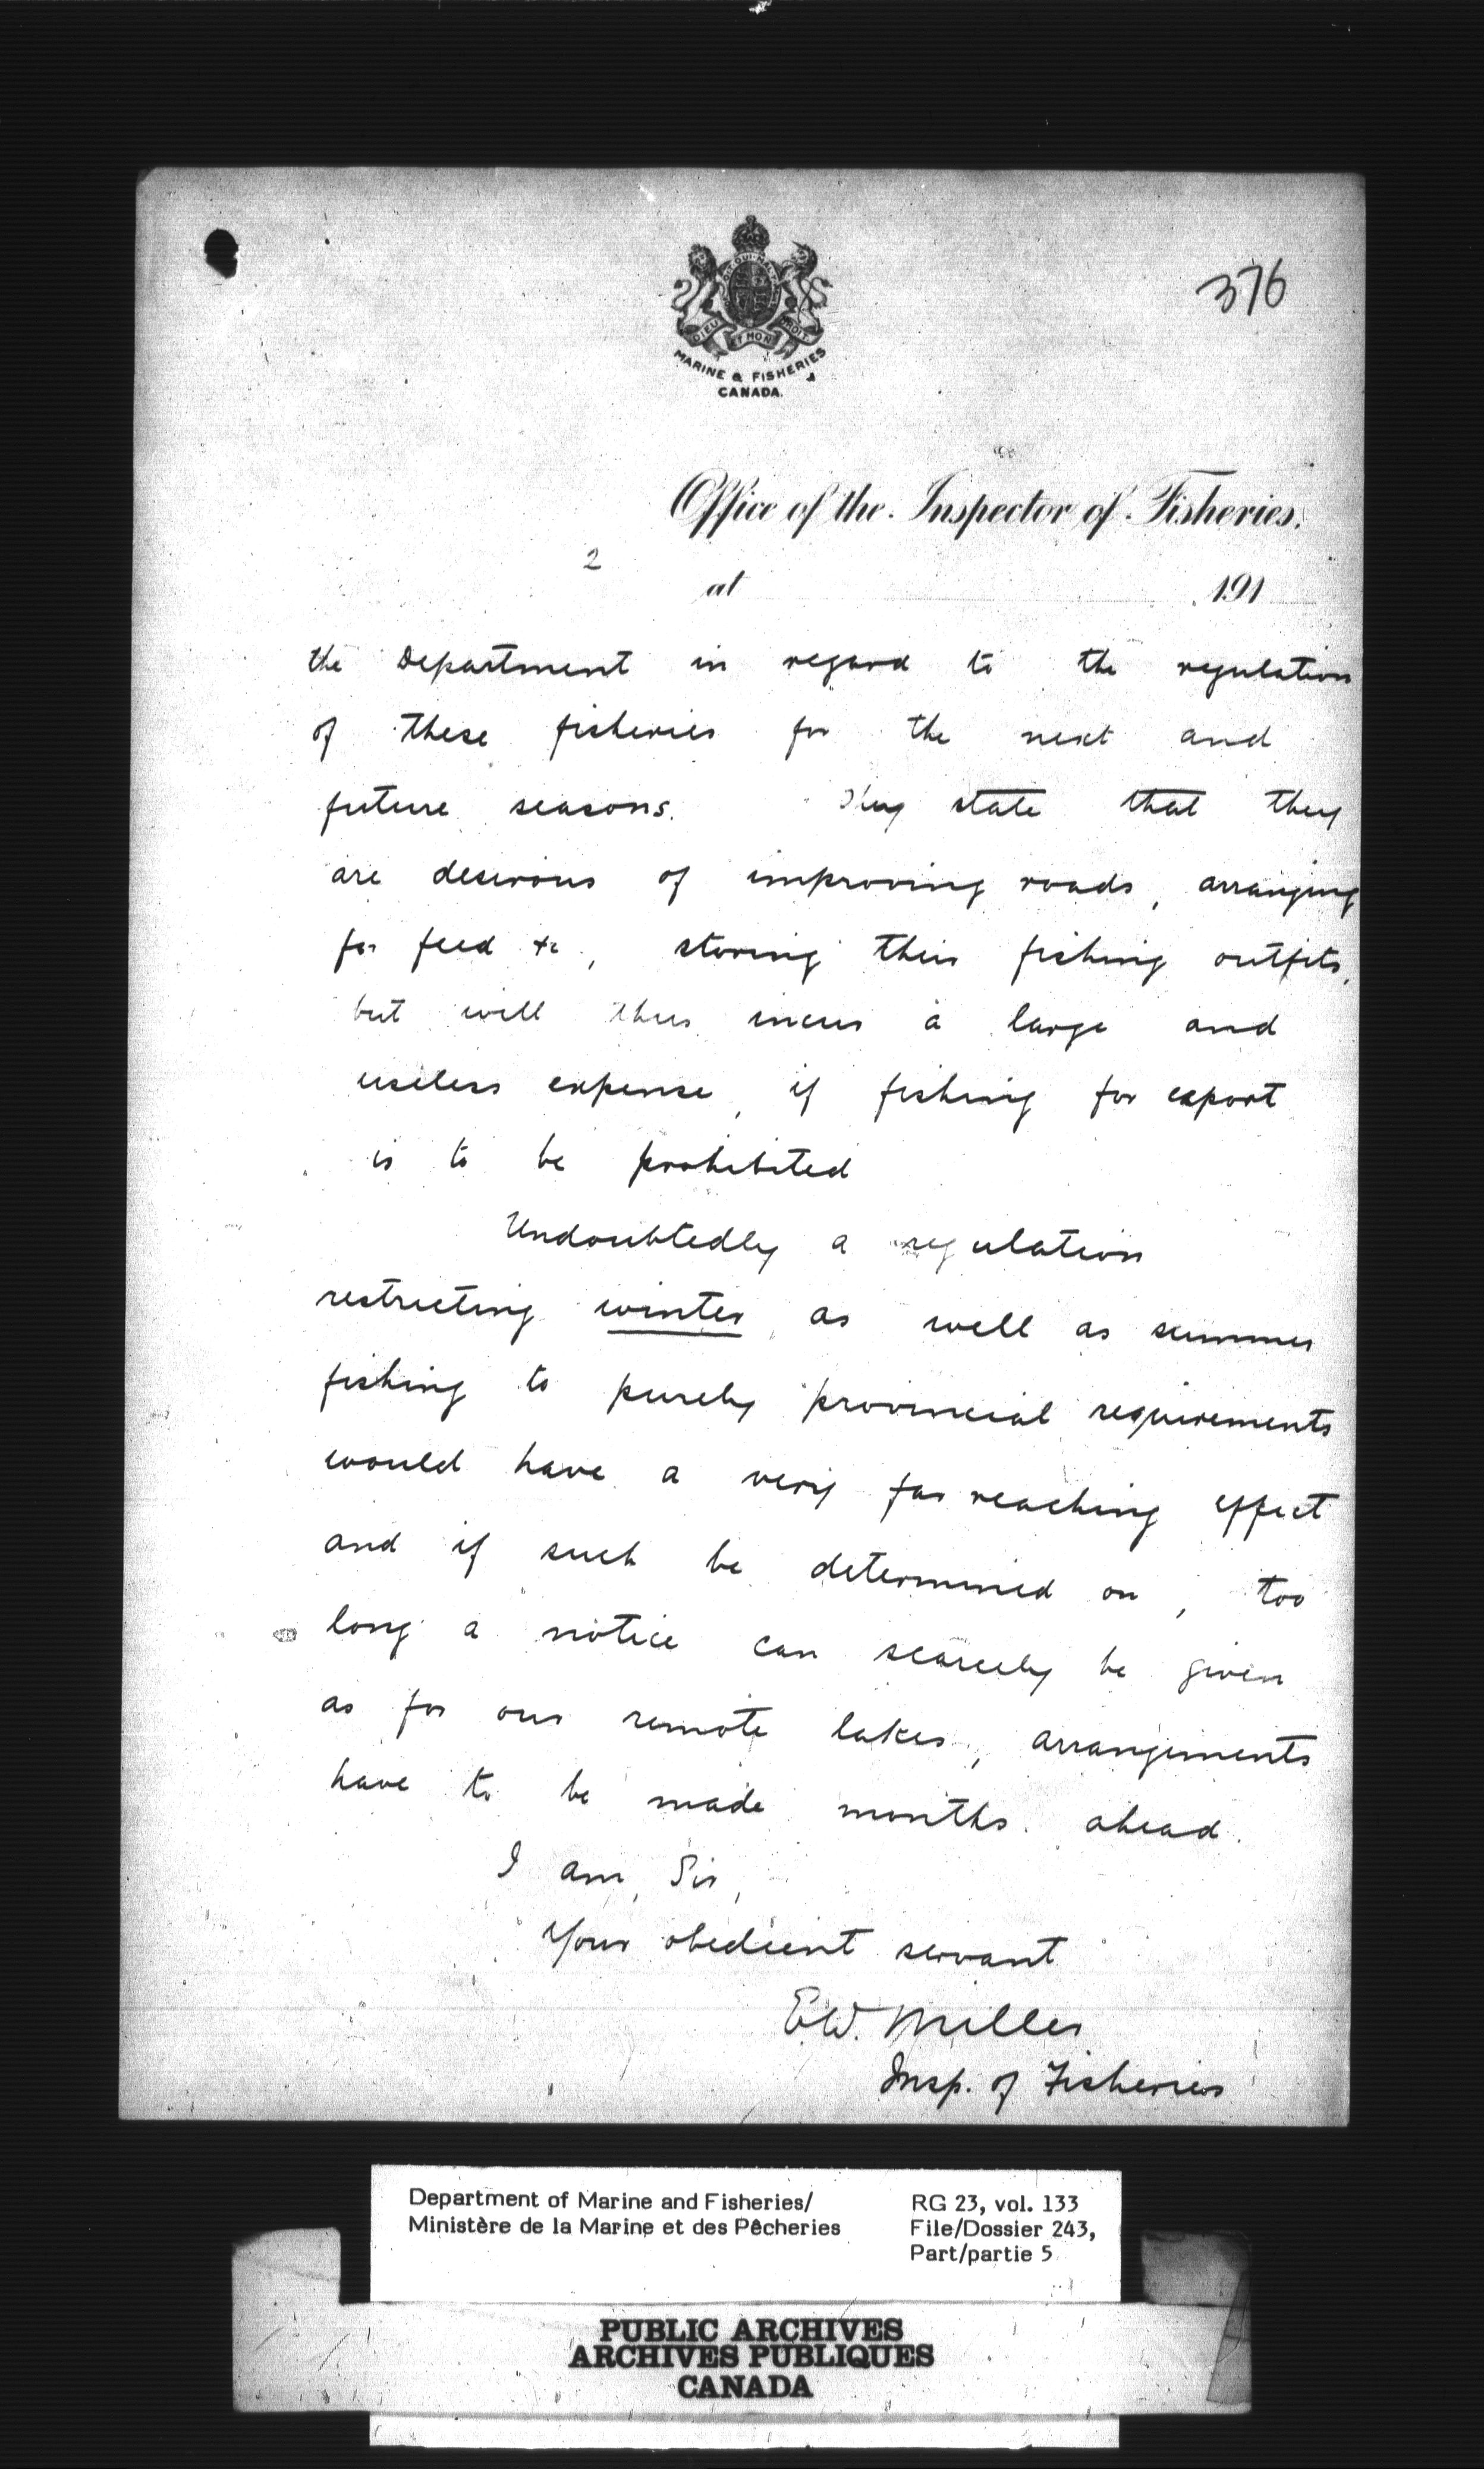 376
DIEU ET MON DROIT
MARINE & FISHERIES
CANADA.
Office of the Inspector of Fisheries.
2
at 191
the Department in regard to the regulation
of these fisheries for the next and
future seasons. They state that they
are desirous of improving roads, arranging
for feed &c, storing their fishing outfits,
but will thus incur a large and
useless expense, if fishing for export
is to be prohibited
Undoubtedly a regulation
restricting winter as well as summer
fishing to purely provincial requirements
would have a very far reaching effect
and if such be determined on, too
long a notice can scarcely be given
as for our remote lakes, arrangements
have to be made months ahead.
I am, Sir,
Your obedient servant
E.W. Miller
Insp. of Fisheries
Department of Marine and Fisheries/
Ministère de la Marine et des Pêcheries
RG 23, vol. 133
File/Dossier 243,
Part/partie 5
PUBLIC ARCHIVES
ARCHIVES PUBLIQUES
CANADA